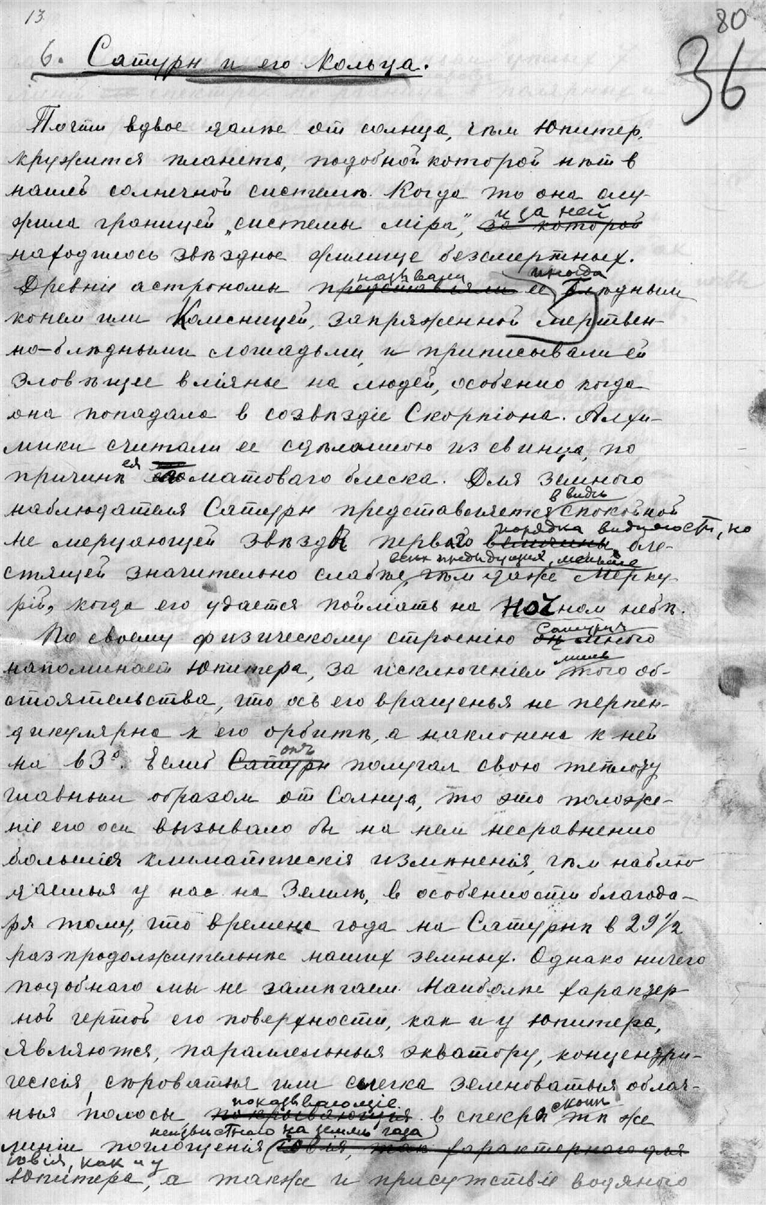 13
80
36
6. Сатурнъ и его кольца.
Почти вдвое далѣе отъ солнца, чѣмъ Юпитеръ,
кружится планета, подобной которой нѣтъ в
нашей солнечной системѣ. Когда то она слу-
и за ней
жила границей „системы міра", за которой
находилось звѣздное жилище безсмертныхъ.
называли иногда
Древніе астрономы представляли ее блѣднымъ
конемъ или Колесницей, запряженной мертвен-
но-блѣдными лошадьми, и приписывали ей
зловѣщее вліянье на людей, особенно когда
она попадала в созвѣздіе Скорпіона. Алхи-
мики считали ее сдѣланною из свинца, по
ея
причинѣ его матоваго блеска. Для земного
в видѣ
наблюдателя Сатурн представляется спокойной
порядка видимости, но
не мерцающей звѣздѣ перваго величины, бле-
всѣх предыдущихъ, меньше
стящей значительно слабѣе, чѣм даже Мерку-
рій, когда его удается поймать на ночном небѣ.
Сатурнъ
По своему физическому строенію он много
лишь
напоминает Юпитера, за исключеніем того об-
стоятельства, что ось его вращенья не перпен-
дикулярна к его орбитѣ, а наклонена к ней
онъ
на 63°. Если б Сатурн получал свою теплоту
главным образом от Солнца, то это положе-
ніе его оси вызывало бы на нем несравненно
большія климатическія измѣненія, чѣм наблю-
даемыя у нас на Землѣ, в особенности благода-
ря тому, что времена года на Сатурнѣ в 29½
раз продолжительнѣе наших земных. Однако ничего
подобнаго мы не замѣчаем. Наиболѣе характер-
ной чертой его поверхности, как и у Юпитера,
являются, параллельныя экватору, концентри-
ческія сѣроватыя или слегка зеленоватыя облач-
показывающіе
ныя полосы покрывающія в спектрѣ тѣ же
неизвѣстнаго на землѣ газа
линіи поглощенія (іовія как характернаго для
іовія, как и у
Юпитера, а также и присутствіе водяного